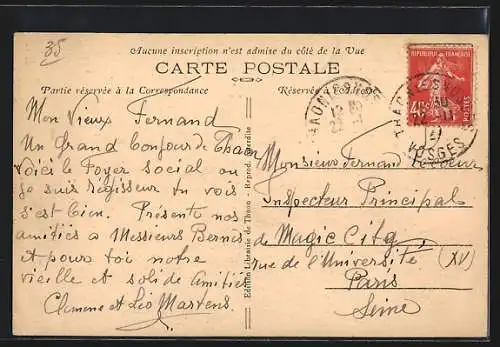 35
Aucune inscription n'est admise du côté de la Vue
CARTE POSTALE
Partie réservée à la Correspondance
Réservée à l'adresse
Mon Vieux Fernand
Un Grand Bonjour de Thaon
Voici le Foyer social ou
je suis Régisseur tu vois
s'est Bien. Présente nos
amitiés a Messieurs Bernès
et pour toi notre
vieille et solide Amitiés
Clemence et Léo Martens
Edition Librairie de Thaon - Reprod. interdite
Monsieur Fernand
Inspecteur Principal
de Magic City
rue de l'Université (XV)
Paris
Seine
REPUBLIQUE FRANÇAISE
40c
POSTES
THAON
VOSGES